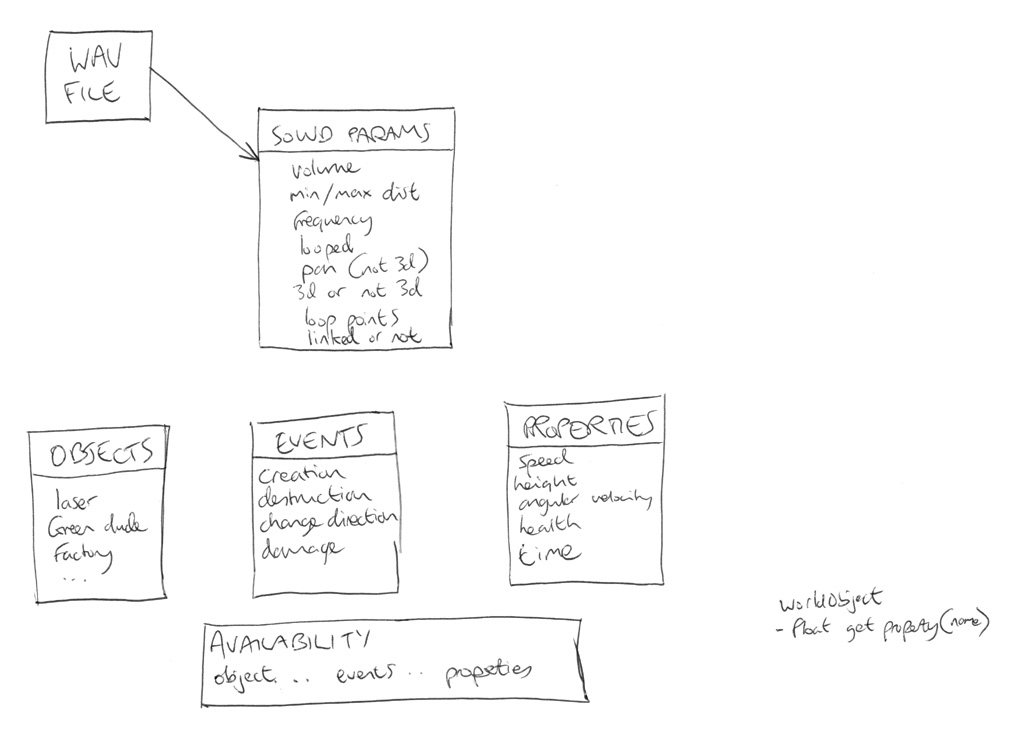 WAV
FILE
SOUND PARAMS
volume
min/max dist
frequency
looped
pan (not 3d)
3d or not 3d
loop points
linked or not
OBJECTS
laser
Green dude
Factory
...
EVENTS
creation
destruction
change direction
damage
PROPERTIES
speed
height
angular velocity
health
time
AVAILABILITY
object... events.. properties
WorldObject
- float get property(name)